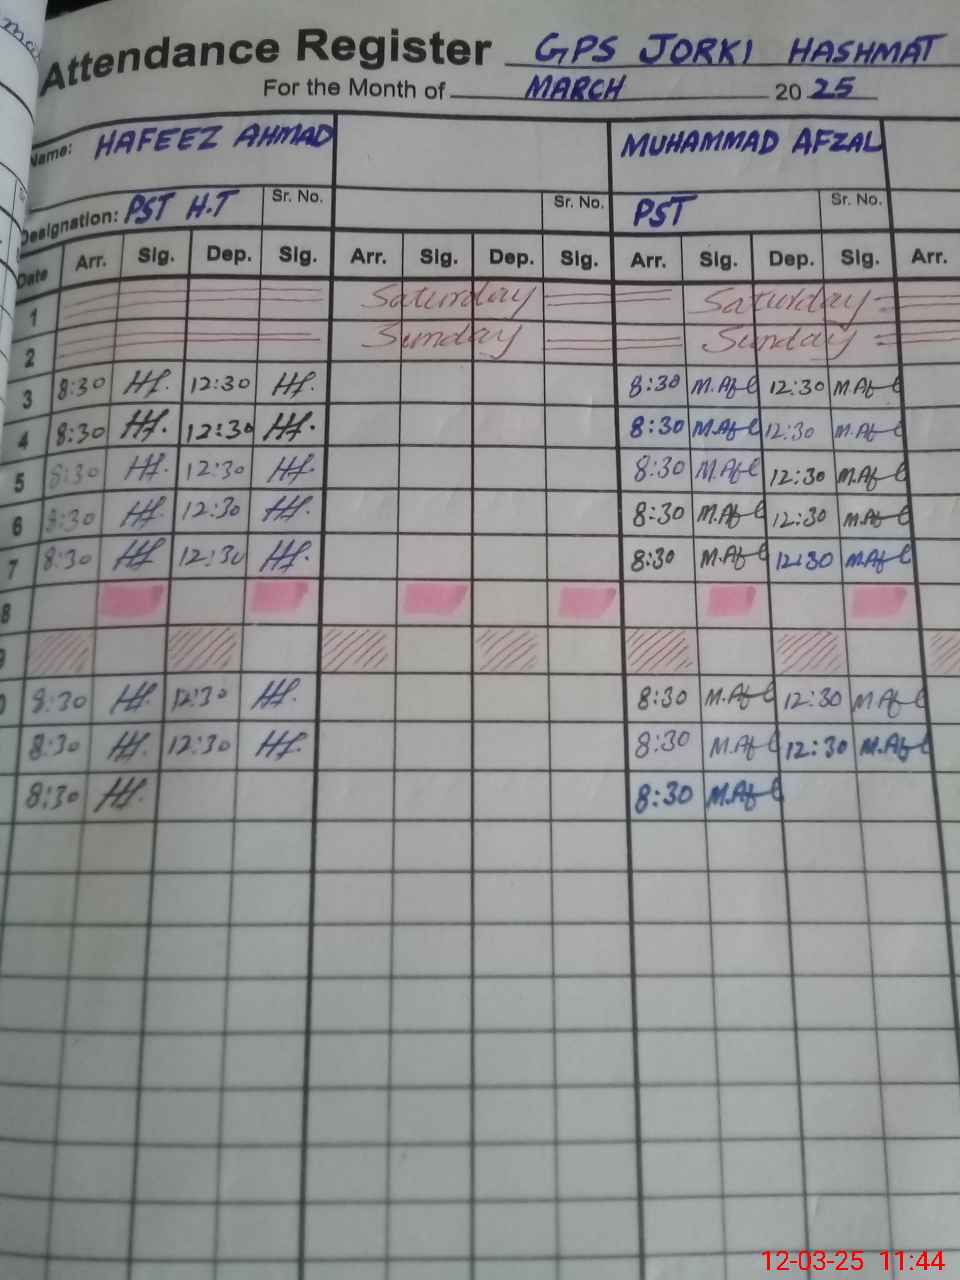 Attendance Register GPS JORKI HASHMAT
For the Month of MARCH 20 25
Name: HAFEEZ AHMAD MUHAMMAD AFZAL
Designation: PST H.T Sr. No. Sr. No. PST Sr. No.
Date Arr. Sig. Dep. Sig. Arr. Sig. Dep. Sig. Arr. Sig. Dep. Sig. Arr.
1 Saturday Saturday
2 Sunday Sunday
3 8:30 Hf. 12:30 Hf. 8:30 M.Afl 12:30 M.Afl
4 8:30 Hf. 12:30 Hf. 8:30 M.Afl 12:30 M.Afl
5 8:30 Hf. 12:30 Hf. 8:30 M.Afl 12:30 M.Afl
6 8:30 Hf. 12:30 Hf. 8:30 M.Afl 12:30 M.Afl
7 8:30 Hf 12:30 Hf. 8:30 M.Afl 12:30 M.Afl
8
9
0 8:30 Hf. 12:30 Hf. 8:30 M.Afl 12:30 M.Afl
8:30 Hf. 12:30 Hf. 8:30 M.Afl 12:30 M.Afl
8:30 Hf. 8:30 M.Afl
12-03-25 11:44